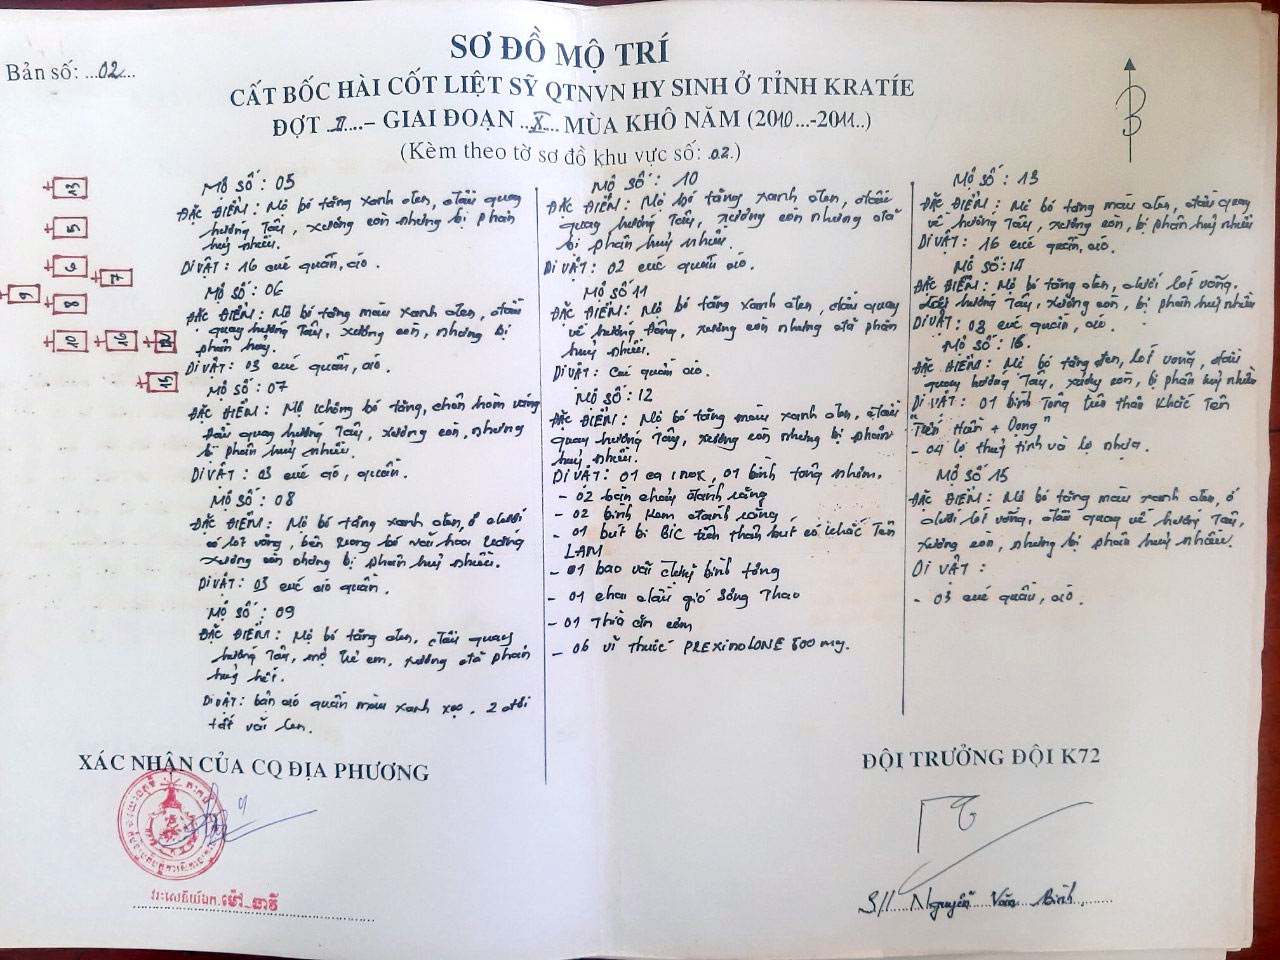 SƠ ĐỒ MỘ TRÍ
Bản số: ...02...
CẤT BỐC HÀI CỐT LIỆT SỸ QTNVN HY SINH Ở TỈNH KRATÍE
ĐỢT .II....– GIAI ĐOẠN ..X... MÙA KHÔ NĂM (2010...-2011..)
(Kèm theo tờ sơ đồ khu vực số: .02.)
B
13
5
6
7
9
8
10
16
15
Mộ số : 05
ĐẶC ĐIỂM : Mộ bó tăng xanh đen, đầu quay
hướng Tây, xương còn nhưng bị phân
huỷ nhiều.
DI VẬT : 16 cúc quần, áo .
Mộ số : 06
ĐẶC ĐIỂM : Mộ bó tăng màu xanh đen, đầu
quay hướng Tây, xương còn, nhưng bị
phân huỷ.
DI VẬT : 03 cúc quần, áo .
Mộ số : 07
ĐẶC ĐIỂM : Mộ không bó tăng, chôn hòm ván
Đầu quay hướng Tây, xương còn, nhưng
bị phân huỷ nhiều.
DI VẬT : 03 cúc áo, quần.
Mộ số : 08
ĐẶC ĐIỂM : Mộ bó tăng xanh đen, ở dưới
có lót võng, bên trong bó vải hoa
xương còn nhưng bị phân huỷ nhiều.
DI VẬT : 03 cúc áo quần .
Mộ số : 09
ĐẶC ĐIỂM : Mộ bó tăng đen, đầu quay
hướng Tây, mộ trẻ em, xương đã phân
huỷ hết.
DI VẬT : bản áo quần màu xanh xẹo . 2 đôi
tất vải len.
Mộ số : 10
ĐẶC ĐIỂM : Mộ bó tăng xanh đen, đầu
quay hướng Tây, xương còn nhưng đã
bị phân huỷ nhiều.
DI VẬT : 02 cúc quần áo.
Mộ số 11
ĐẶC ĐIỂM : Mộ bó tăng xanh đen, đầu quay
về hướng Đông, xương còn nhưng đã phân
huỷ nhiều.
DI VẬT : Cúc quần áo.
Mộ số : 12
ĐẶC ĐIỂM : Mộ bó tăng màu xanh đen, đầu
quay hướng Tây, xương còn nhưng bị phân
huỷ nhiều.
DI VẬT : 01 ca INOX, 01 bình tông nhôm.
- 02 bàn chải đánh răng
- 02 bình kem đánh răng
- 01 bút bi BIC trên thân bút có khắc Tên
LAM
- 01 bao vải đựng bình tông
- 01 chai dầu gió Sông Thao
- 01 Thìa ăn cơm
- 06 vĩ thuốc PREXINOLONE 500 mg.
Mộ số : 13
ĐẶC ĐIỂM : Mộ bó tăng màu đen, đầu quay
về hướng Tây, xương còn, bị phân huỷ nhiều
DI VẬT : 16 cúc quần, áo
Mộ số : 14
ĐẶC ĐIỂM : Mộ bó tăng đen, dưới lót võng.
hướng Tây, xương còn, bị phân huỷ nhiều
DI VẬT : 03 cúc quần, áo.
Mộ số : 16.
ĐẶC ĐIỂM : Mộ bó tăng đen, lót võng, đầu
quay hướng Tây, xương còn, bị phân huỷ nhiều
DI VẬT : 01 bình Tông trên thân Khắc Tên
"Tiến Hân + Dong"
- 04 lọ thuỷ tinh và lọ nhựa.
Mộ số 15
ĐẶC ĐIỂM : Mộ bó tăng màu xanh đen, ở
dưới lót võng, đầu quay về hướng Tây,
xương còn, nhưng bị phân huỷ nhiều.
DI VẬT :
- 03 cúc quần, áo.
XÁC NHẬN CỦA CQ ĐỊA PHƯƠNG
ĐỘI TRƯỞNG ĐỘI K72
វរៈសេនីយ៍ឯក.ម៉ៅ_នារី
3// Nguyễn Văn Bình